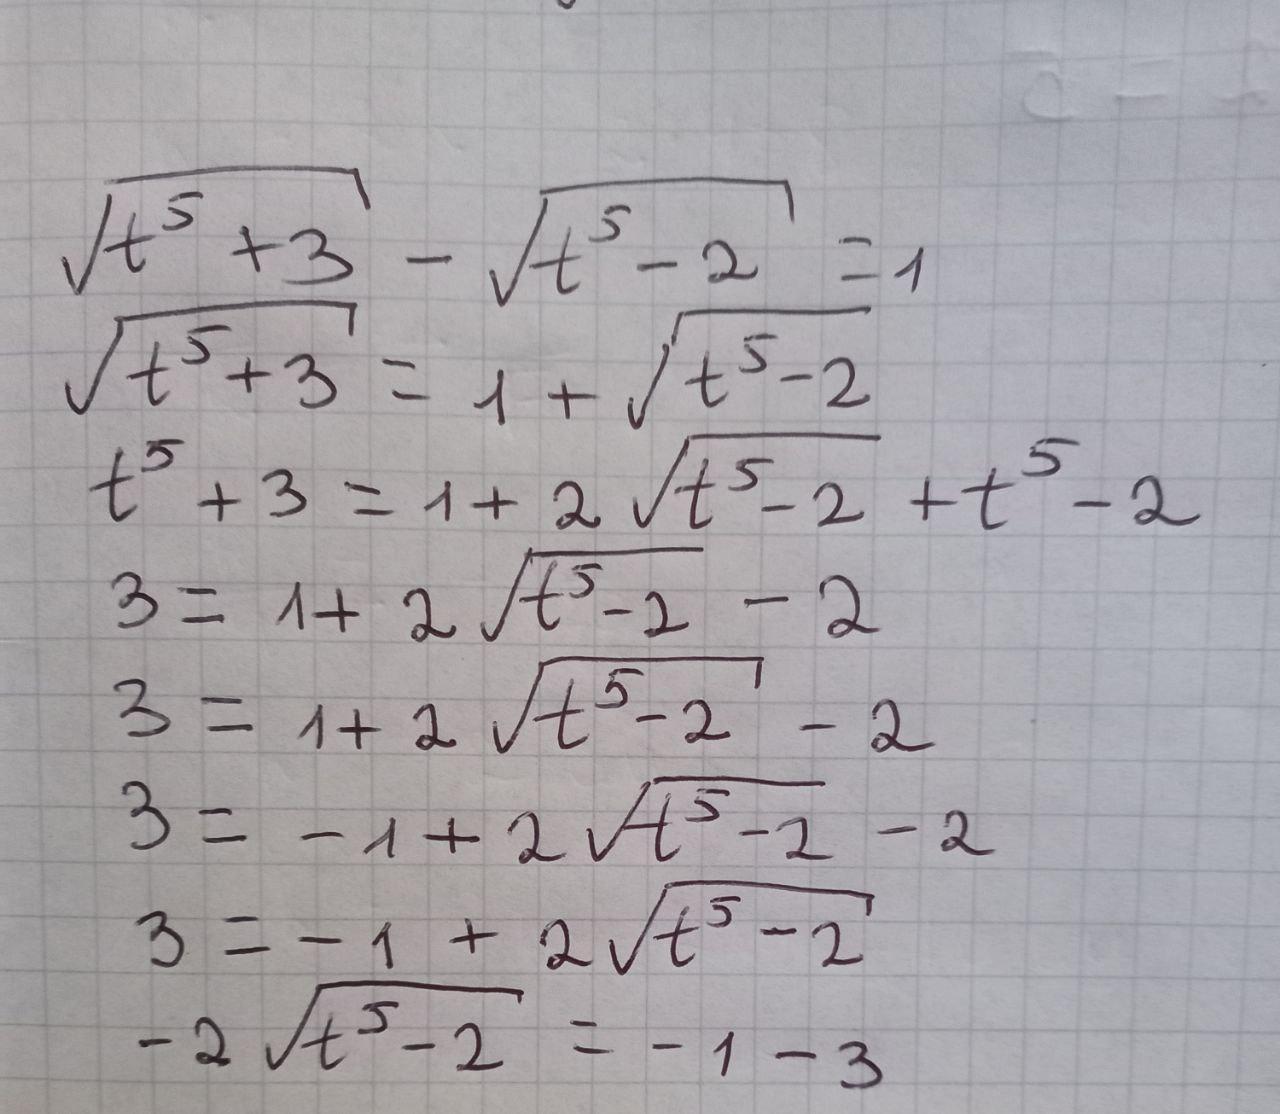 √(t⁵ + 3) - √(t⁵ - 2) = 1
√(t⁵ + 3) = 1 + √(t⁵ - 2)
t⁵ + 3 = 1 + 2 √(t⁵ - 2) + t⁵ - 2
3 = 1 + 2 √(t⁵ - 2) - 2
3 = 1 + 2 √(t⁵ - 2) - 2
3 = - 1 + 2 √(t⁵ - 2) - 2
3 = - 1 + 2 √(t⁵ - 2)
- 2 √(t⁵ - 2) = - 1 - 3